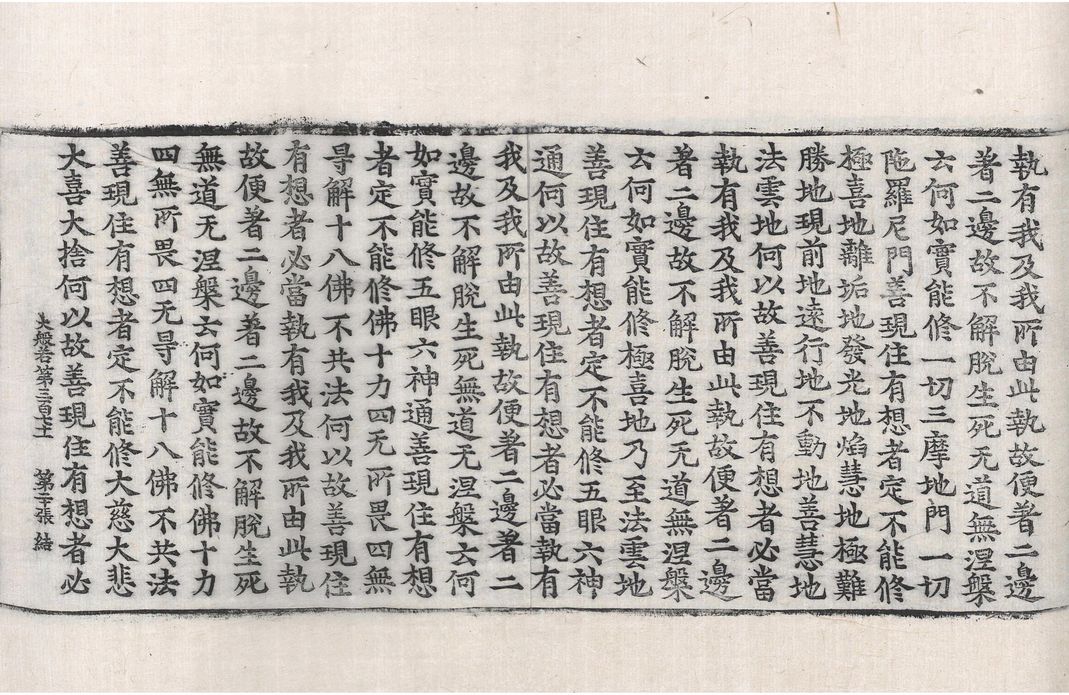 執有我及我所由此執故便著二邊
著二邊故不解脫生死无道無涅槃
云何如實能修一切三摩地門一切
陁羅尼門善現住有想者定不能修
極喜地離垢地發光地焰慧地極難
勝地現前地遠行地不動地善慧地
法雲地何以故善現住有想者必當
執有我及我所由此執故便著二邊
著二邊故不解脫生死无道無涅槃
云何如實能修極喜地乃至法雲地
善現住有想者定不能修五眼六神
通何以故善現住有想者必當執有
我及我所由此執故便著二邊著二
邊故不解脫生死無道无涅槃云何
如實能修五眼六神通善現住有想
者定不能修佛十力四无所畏四無
㝵解十八佛不共法何以故善現住
有想者必當執有我及我所由此執
故便著二邊著二邊故不解脫生死
無道无涅槃云何如實能修佛十力
四無所畏四无㝵解十八佛不共法
善現住有想者定不能修大慈大悲
大喜大捨何以故善現住有想者必
大般若第三百 張 結